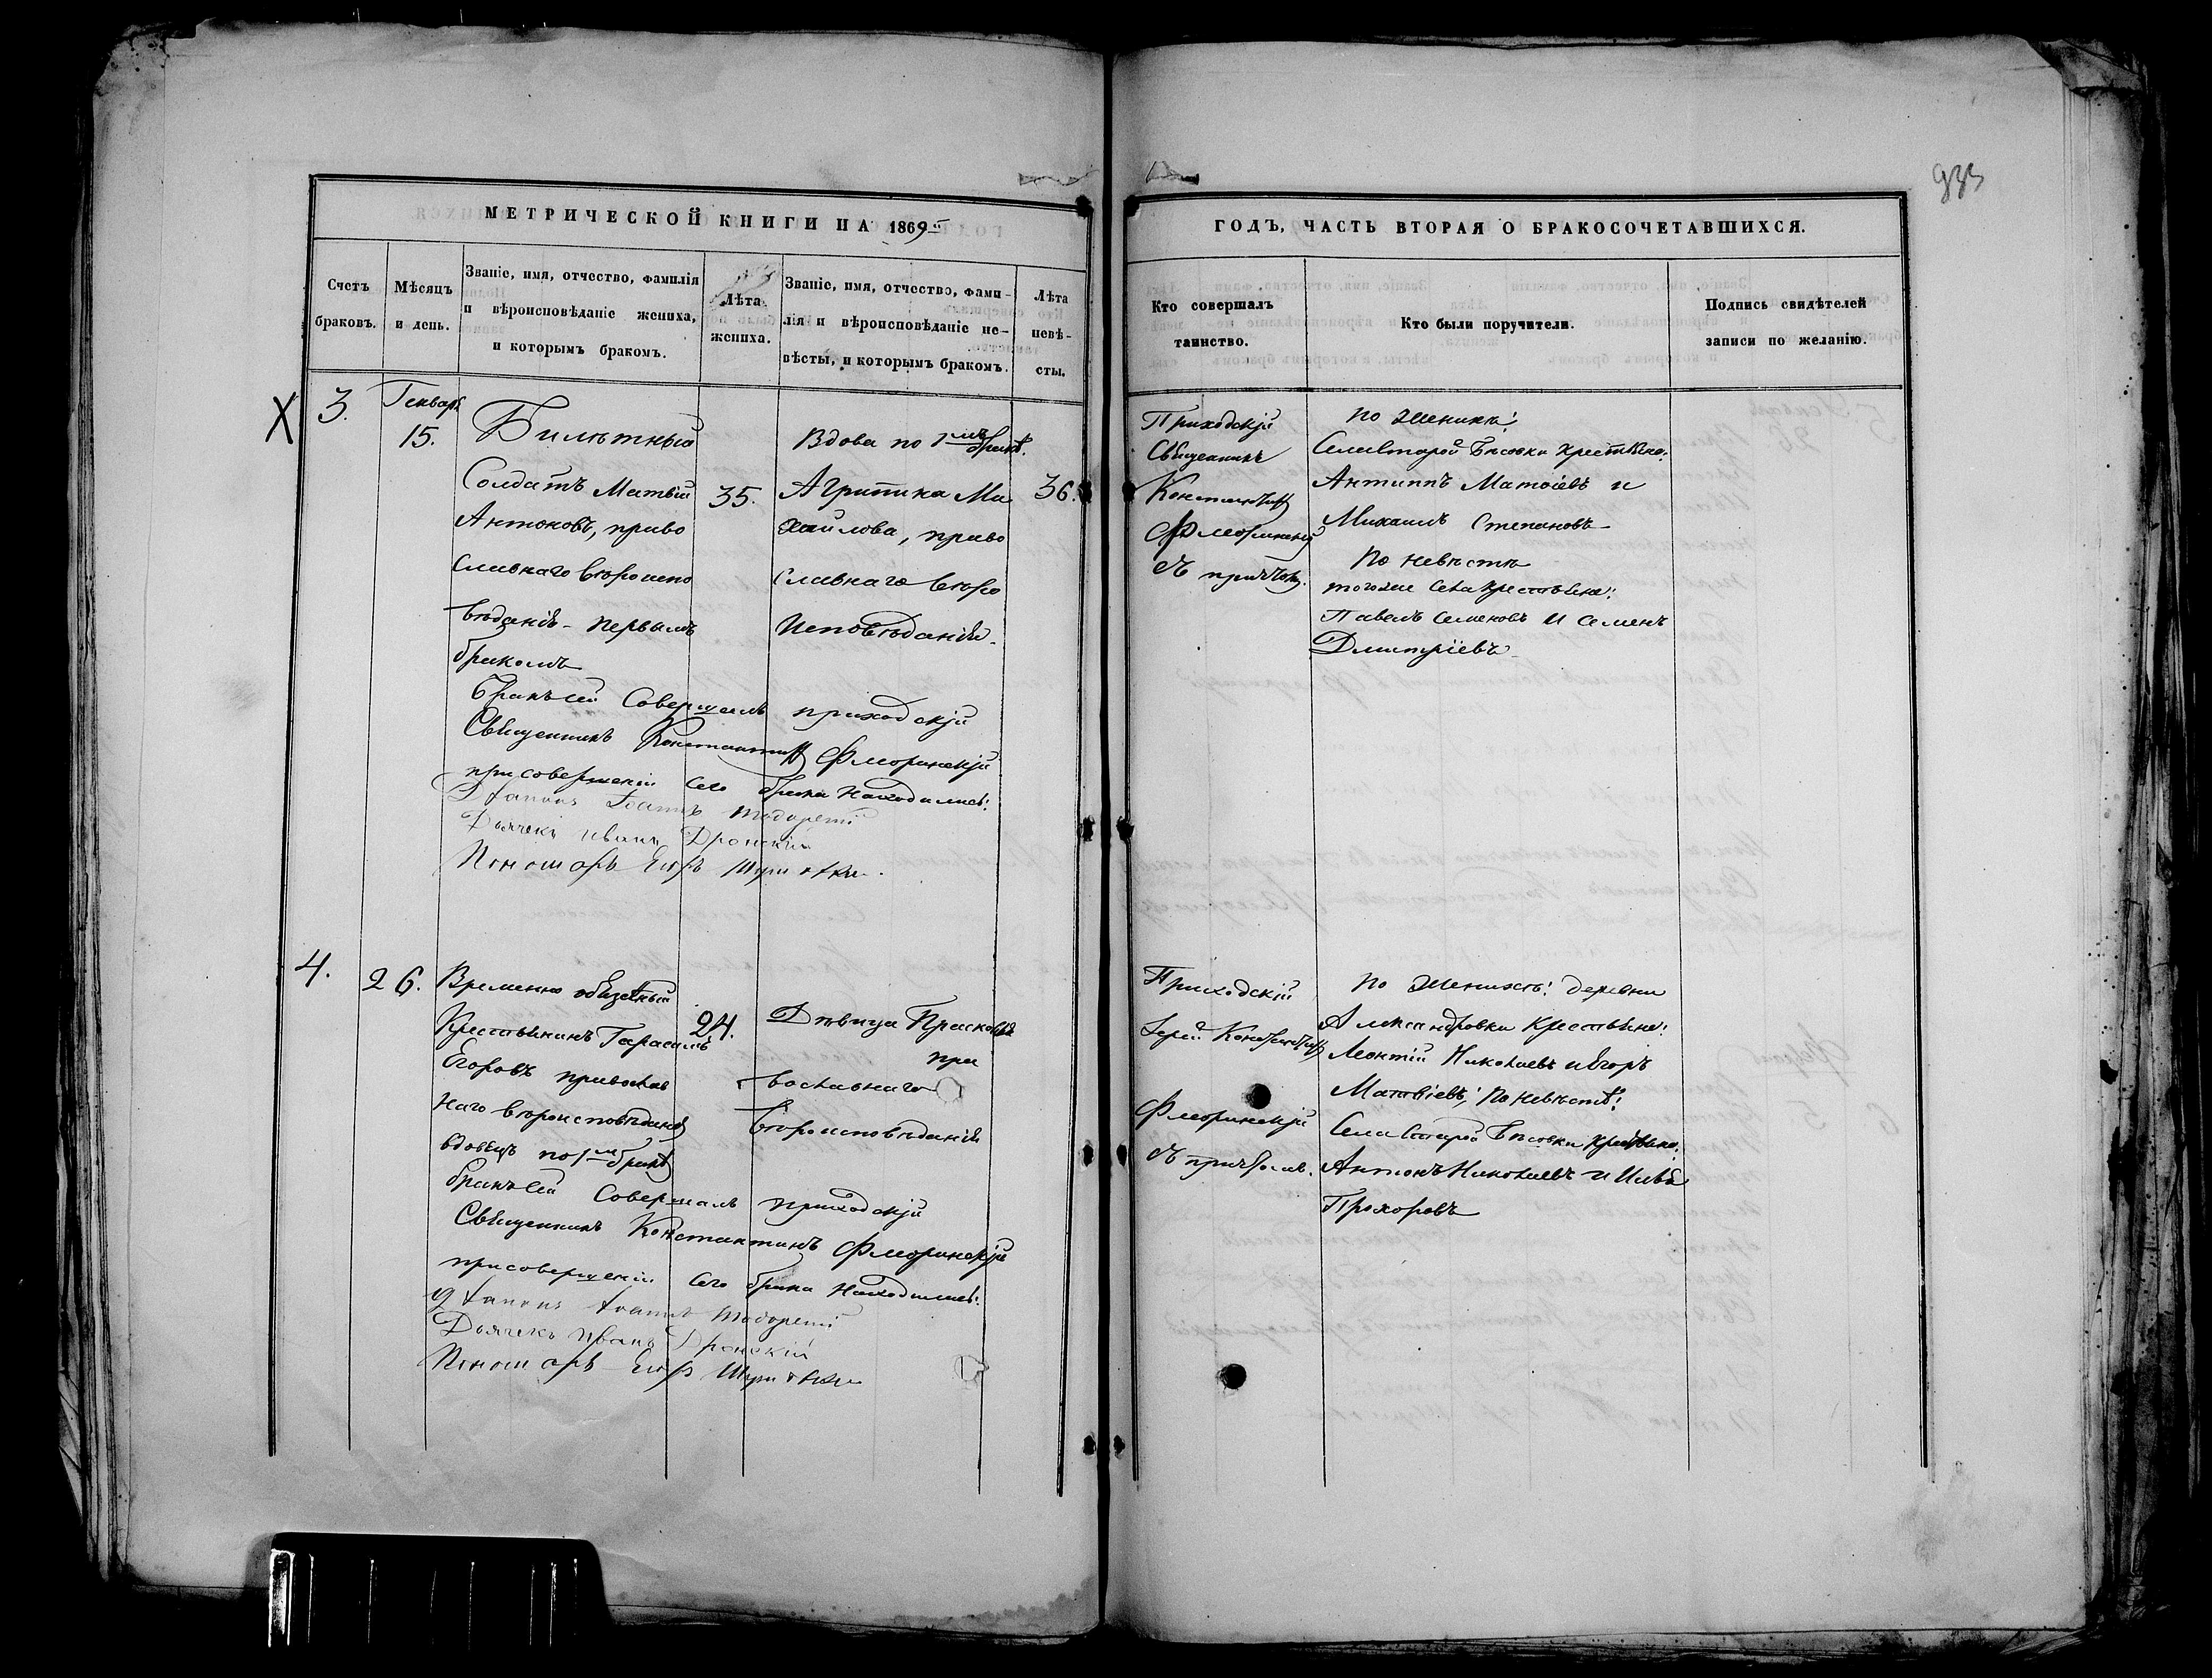 933
МЕТРИЧЕСКОЙ КНИГИ НА 1869
ГОДЪ, ЧАСТЬ ВТОРАЯ О БРАКОСОЧЕТАВШИХСЯ.
Счетъ
браковъ.
Мѣсяцъ
и день.
Званіе, имя, отчество, фамилія
и вѣроисповѣданіе жениха,
и которымъ бракомъ.
Лѣта
жениха.
Званіе, имя, отчество, фами-
лія и вѣроисповѣданіе не-
вѣсты, и которымъ бракомъ.
Лѣта
невѣ-
сты.
Кто совершалъ
таинство.
Кто были поручители.
Подпись свидѣтелей
записи по желанію.
X 3.
Генварь
15.
Билѣтный
Солдатъ Матвѣй
Антоновъ, право
славнаго вѣроиспо
вѣданія - первымъ
бракомъ
35.
Вдова по 1мъ бракѣ.
Агрипина Ми
хайлова, право
славнаго вѣро
исповѣданія.
36.
Приходскій
Священникъ
Константинъ
Флоринскій
съ причтомъ.
по жениху:
Села Старой Басовки крестьяне:
Антипъ Матвіевъ и
Михаилъ Степановъ
По невѣстѣ
тогоже села крестьяне:
Павелъ Семеновъ и Семенъ
Дмитріевъ
Бракъ сей совершалъ приходскій
Священникъ Константинъ Флоринскій
при совершеніи сего брака находились:
Іоаннъ
Дьячекъ Иванъ Дронскій
Пономарь Егоръ
4.
26.
Временно обязанный
Крестьянинъ Герасимъ
Егоровъ православ
наго вѣроисповѣданія
вдовецъ по 1мъ бракѣ
24.
Дѣвица Прасковья
пра
вославнаго
вѣроисповѣданія
Приходскій
Іерей Константинъ
Флоринскій
съ причтомъ.
по женихѣ: деревни
Александровки крестьяне:
Леонтій Николаевъ и Егоръ
Матвіевъ; по невѣстѣ:
Села Старой Басовки крестьяне:
Антонъ Николаевъ и Илья
Прохоровъ
Бракъ сей совершалъ приходскій
Священникъ Константинъ Флоринскій
при совершеніи сего брака находились:
Іоаннъ
Дьячекъ Иванъ Дронскій
Пономарь Егоръ